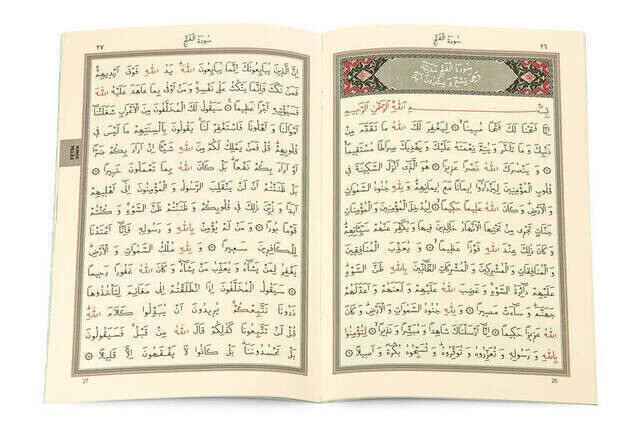 سُورَةُ الْفَتْحِ
٢٦
سورة الفتح مدنية
وهي تسع وعشرون آية
بِسْمِ اللّٰهِ الرَّحْمٰنِ الرَّحِيمِ
اِنَّا فَتَحْنَا لَكَ فَتْحًا مُبِينًا ۝ لِيَغْفِرَ لَكَ اللّٰهُ مَا تَقَدَّمَ مِنْ
ذَنْبِكَ وَ مَا تَاَخَّرَ وَ يُتِمَّ نِعْمَتَهُ عَلَيْكَ وَ يَهْدِيَكَ صِرَاطًا مُسْتَقِيمًا
۝ وَ يَنْصُرَكَ اللّٰهُ نَصْرًا عَزِيزًا ۝ هُوَ الَّذِى اَنْزَلَ السَّكِينَةَ فِى
قُلُوبِ الْمُؤْمِنِينَ لِيَزْدَادُوا اِيمَانًا مَعَ اِيمَانِهِمْ وَ لِلّٰهِ جُنُودُ السَّمٰوَاتِ
وَ الْاَرْضِ وَ كَانَ اللّٰهُ عَلِيمًا حَكِيمًا ۝ لِيُدْخِلَ الْمُؤْمِنِينَ وَ الْمُؤْمِنَاتِ
جَنَّاتٍ تَجْرِى مِنْ تَحْتِهَا الْاَنْهَارُ خَالِدِينَ فِيهَا وَ يُكَفِّرَ عَنْهُمْ سَيِّئَاتِهِمْ
وَ كَانَ ذٰلِكَ عِنْدَ اللّٰهِ فَوْزًا عَظِيمًا ۝ وَ يُعَذِّبَ الْمُنَافِقِينَ
وَ الْمُنَافِقَاتِ وَ الْمُشْرِكِينَ وَ الْمُشْرِكَاتِ الظَّانِّينَ بِاللّٰهِ ظَنَّ السَّوْءِ
عَلَيْهِمْ دَائِرَةُ السَّوْءِ وَ غَضِبَ اللّٰهُ عَلَيْهِمْ وَ لَعَنَهُمْ وَ اَعَدَّ لَهُمْ
جَهَنَّمَ وَ سَاءَتْ مَصِيرًا ۝ وَ لِلّٰهِ جُنُودُ السَّمٰوَاتِ وَ الْاَرْضِ وَ كَانَ
اللّٰهُ عَزِيزًا حَكِيمًا ۝ اِنَّا اَرْسَلْنَاكَ شَاهِدًا وَ مُبَشِّرًا وَ نَذِيرًا ۝ لِتُؤْمِنُوا
بِاللّٰهِ وَ رَسُولِهِ وَ تُعَزِّرُوهُ وَ تُوَقِّرُوهُ وَ تُسَبِّحُوهُ بُكْرَةً وَ اَصِيلًا ۝
26
سُورَةُ الْفَتْحِ
٢٧
اِنَّ الَّذِينَ يُبَايِعُونَكَ اِنَّمَا يُبَايِعُونَ اللّٰهَ يَدُ اللّٰهِ فَوْقَ اَيْدِيهِمْ
فَمَنْ نَكَثَ فَاِنَّمَا يَنْكُثُ عَلٰى نَفْسِهِ وَ مَنْ اَوْفٰى بِمَا عَاهَدَ عَلَيْهُ اللّٰهَ
فَسَيُؤْتِيهِ اَجْرًا عَظِيمًا ۝ سَيَقُولُ لَكَ الْمُخَلَّفُونَ مِنَ الْاَعْرَابِ شَغَلَتْنَا
اَمْوَالُنَا وَ اَهْلُونَا فَاسْتَغْفِرْ لَنَا يَقُولُونَ بِاَلْسِنَتِهِمْ مَا لَيْسَ فِى
قُلُوبِهِمْ قُلْ فَمَنْ يَمْلِكُ لَكُمْ مِنَ اللّٰهِ شَيْئًا اِنْ اَرَادَ بِكُمْ ضَرًّا
اَوْ اَرَادَ بِكُمْ نَفْعًا بَلْ كَانَ اللّٰهُ بِمَا تَعْمَلُونَ خَبِيرًا ۝
بَلْ ظَنَنْتُمْ اَنْ لَنْ يَنْقَلِبَ الرَّسُولُ وَ الْمُؤْمِنُونَ اِلٰى اَهْلِيهِمْ
اَبَدًا وَ زُيِّنَ ذٰلِكَ فِى قُلُوبِكُمْ وَ ظَنَنْتُمْ ظَنَّ السَّوْءِ وَ كُنْتُمْ
قَوْمًا بُورًا ۝ وَ مَنْ لَمْ يُؤْمِنْ بِاللّٰهِ وَ رَسُولِهِ فَاِنَّا اَعْتَدْنَا
لِلْكَافِرِينَ سَعِيرًا ۝ وَ لِلّٰهِ مُلْكُ السَّمٰوَاتِ وَ الْاَرْضِ
يَغْفِرُ لِمَنْ يَشَاءُ وَ يُعَذِّبُ مَنْ يَشَاءُ وَ كَانَ اللّٰهُ غَفُورًا رَحِيمًا
۝ سَيَقُولُ الْمُخَلَّفُونَ اِذَا انْطَلَقْتُمْ اِلٰى مَغَانِمَ لِتَاْخُذُوهَا
ذَرُونَا نَتَّبِعْكُمْ يُرِيدُونَ اَنْ يُبَدِّلُوا كَلَامَ اللّٰهِ
قُلْ لَنْ تَتَّبِعُونَا كَذٰلِكُمْ قَالَ اللّٰهُ مِنْ قَبْلُ فَسَيَقُولُونَ
بَلْ تَحْسُدُونَنَا بَلْ كَانُوا لَا يَفْقَهُونَ اِلَّا قَلِيلًا ۝
27
FETİH